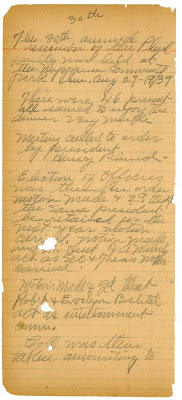 30th
The 30th annual
reunion of the
family was held at
the Nappanee Community
Park Sun. Aug 27-1939
There were 46 present
all seemed to enjoy the
dinner very much
Meeting called to order
by president
Henry
Election of Officers
was then in order
motion made & 2nd that
the same president
be retained for the
next year motion
carried. Motion made
and that
act as Sec & Treas motion
carried
Motion made & 2nd that
Robt & Evelyn Bechtel
act as entertainment
comm.
Coll. was then
taken amounting to